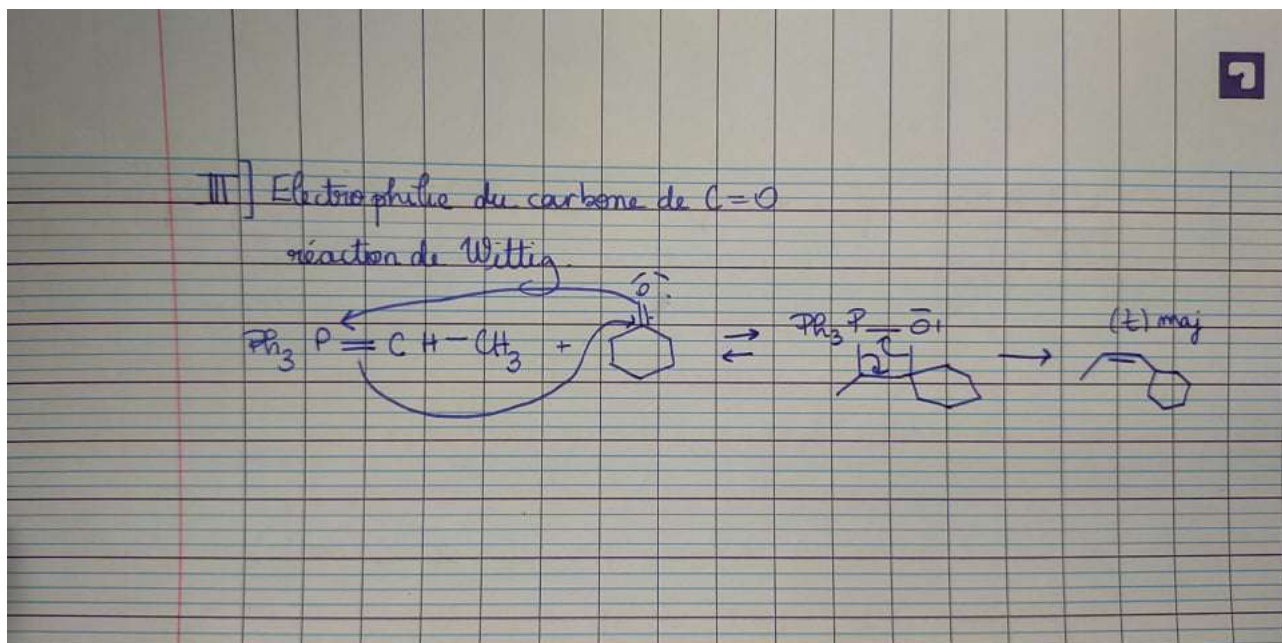 III] Electrophilie du carbone de C=O
réaction de Wittig.
Ph3 P=CH-CH3 + O ⇌ Ph3 P-O → (t) maj